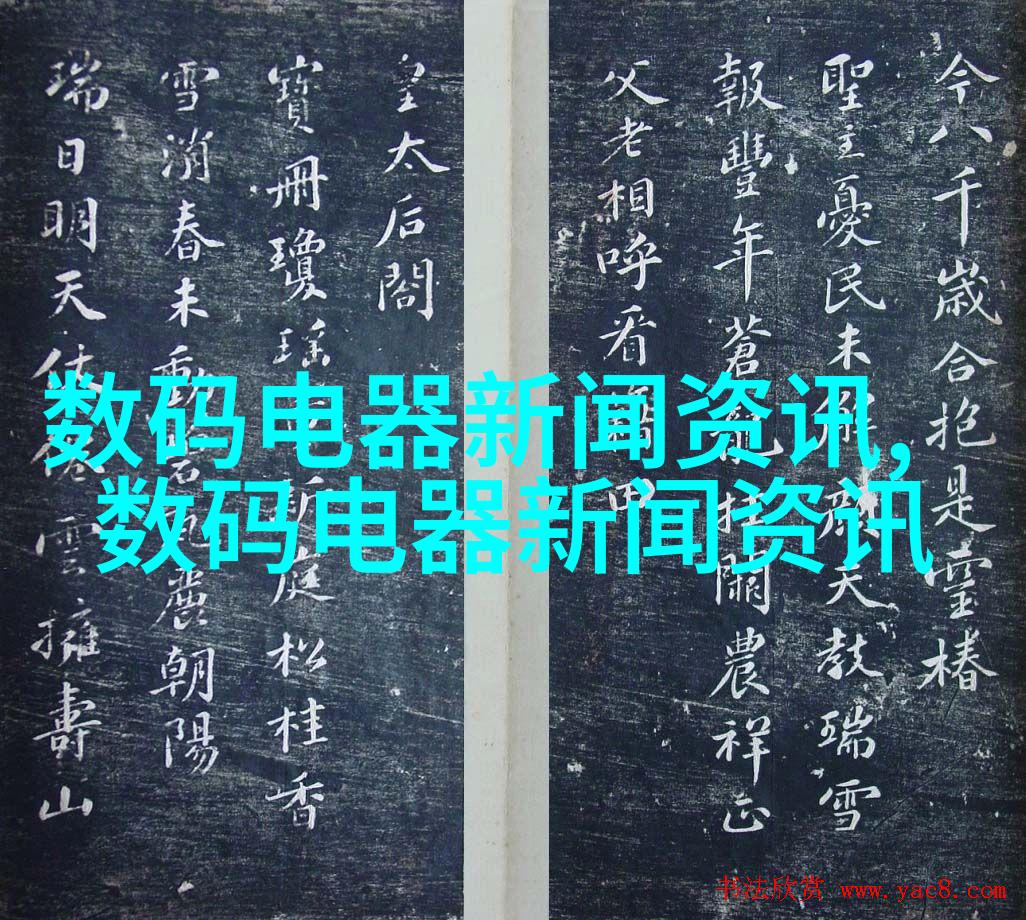 今八千歲合抱是靈椿
聖主憂民未解顏天教瑞雪
報豐年蒼龍挂闕農祥正
父老相呼看藉田
皇太后閣
寶冊瓊瑤
庭松桂香
雪消春未動
麗朝陽
瑞日明天
雲擁壽山
数码电器新闻资讯,
数码电器新闻资讯
书法欣赏 www.yac8.com